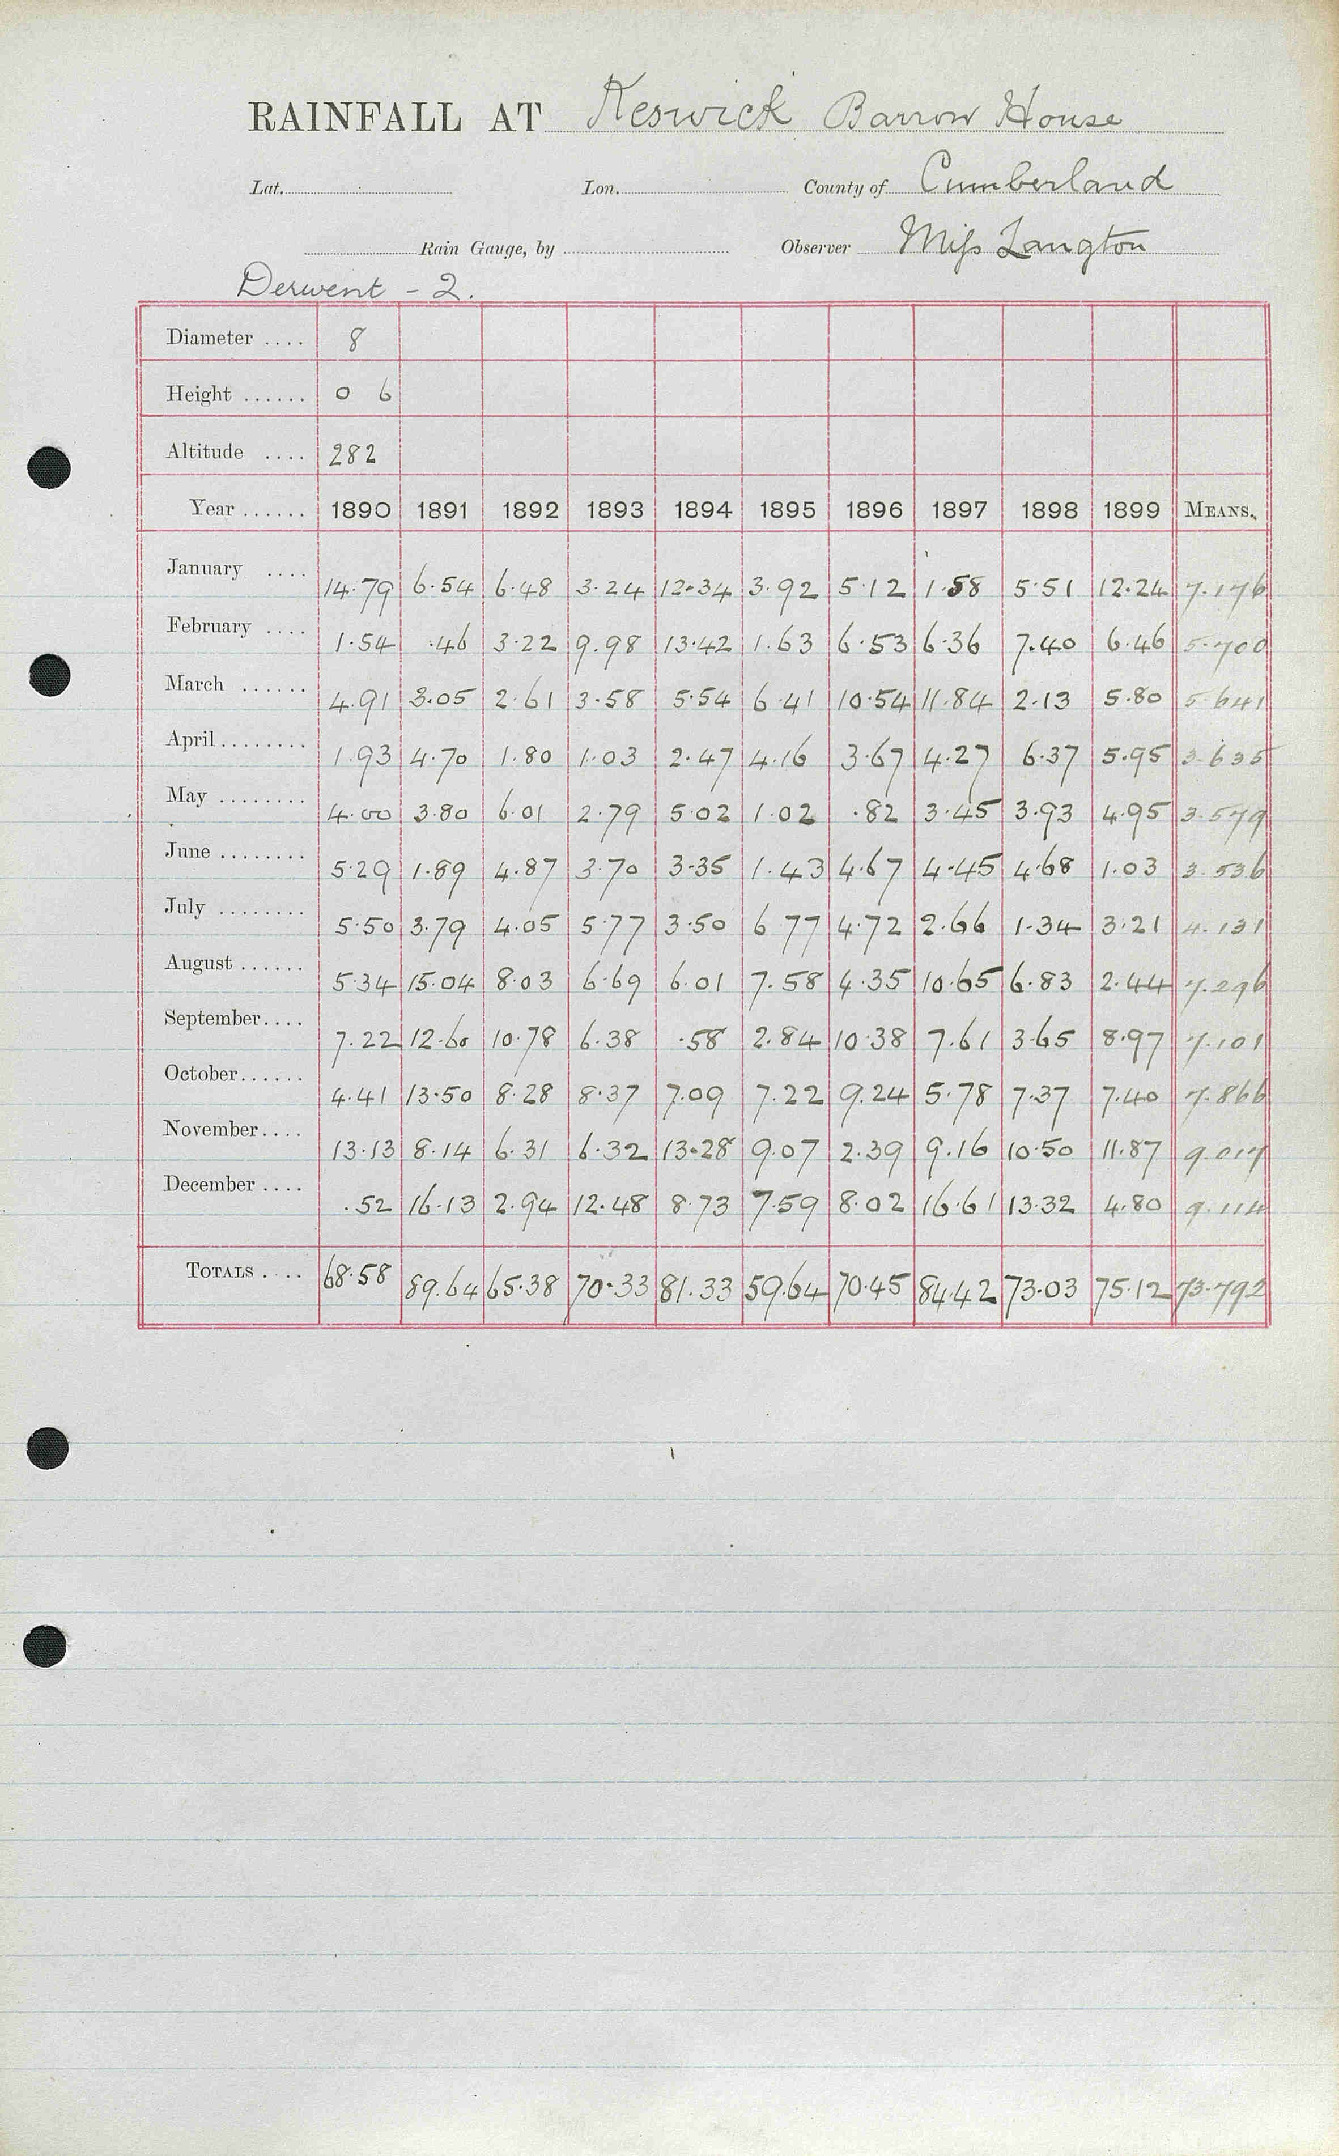 RAINFALL AT Keswick Barrow House
Lat. Lon. County of Cumberland
Rain Gauge, by Observer Miss Langton
Derwent - 2.
Diameter .... 8
Height ...... 0 6
Altitude .... 282
Year ...... 1890 1891 1892 1893 1894 1895 1896 1897 1898 1899 MEANS.
January .... 14.79 6.54 6.48 3.24 12.34 3.92 5.12 1.58 5.51 12.24 7.176
February .... 1.54 .46 3.22 9.98 13.42 1.63 6.53 6.36 7.40 6.46 5.700
March ...... 4.91 3.05 2.61 3.58 5.54 6.41 10.54 11.84 2.13 5.80 5.641
April ........ 1.93 4.70 1.80 1.03 2.47 4.16 3.67 4.27 6.37 5.95 3.635
May ........ 4.00 3.80 6.01 2.79 5.02 1.02 .82 3.45 3.93 4.95 3.579
June ........ 5.29 1.89 4.87 3.70 3.35 1.43 4.67 4.45 4.68 1.03 3.536
July ........ 5.50 3.79 4.05 5.77 3.50 6.77 4.72 2.66 1.34 3.21 4.131
August ...... 5.34 15.04 8.03 6.69 6.01 7.58 4.35 10.65 6.83 2.44 7.296
September .... 7.22 12.60 10.78 6.38 .58 2.84 10.38 7.61 3.65 8.97 7.101
October ...... 4.41 13.50 8.28 8.37 7.09 7.22 9.24 5.78 7.37 7.40 7.866
November .... 13.13 8.14 6.31 6.32 13.28 9.07 2.39 9.16 10.50 11.87 9.017
December .... .52 16.13 2.94 12.48 8.73 7.59 8.02 16.61 13.32 4.80 9.114
TOTALS .... 68.58 89.64 65.38 70.33 81.33 59.64 70.45 84.42 73.03 75.12 73.792